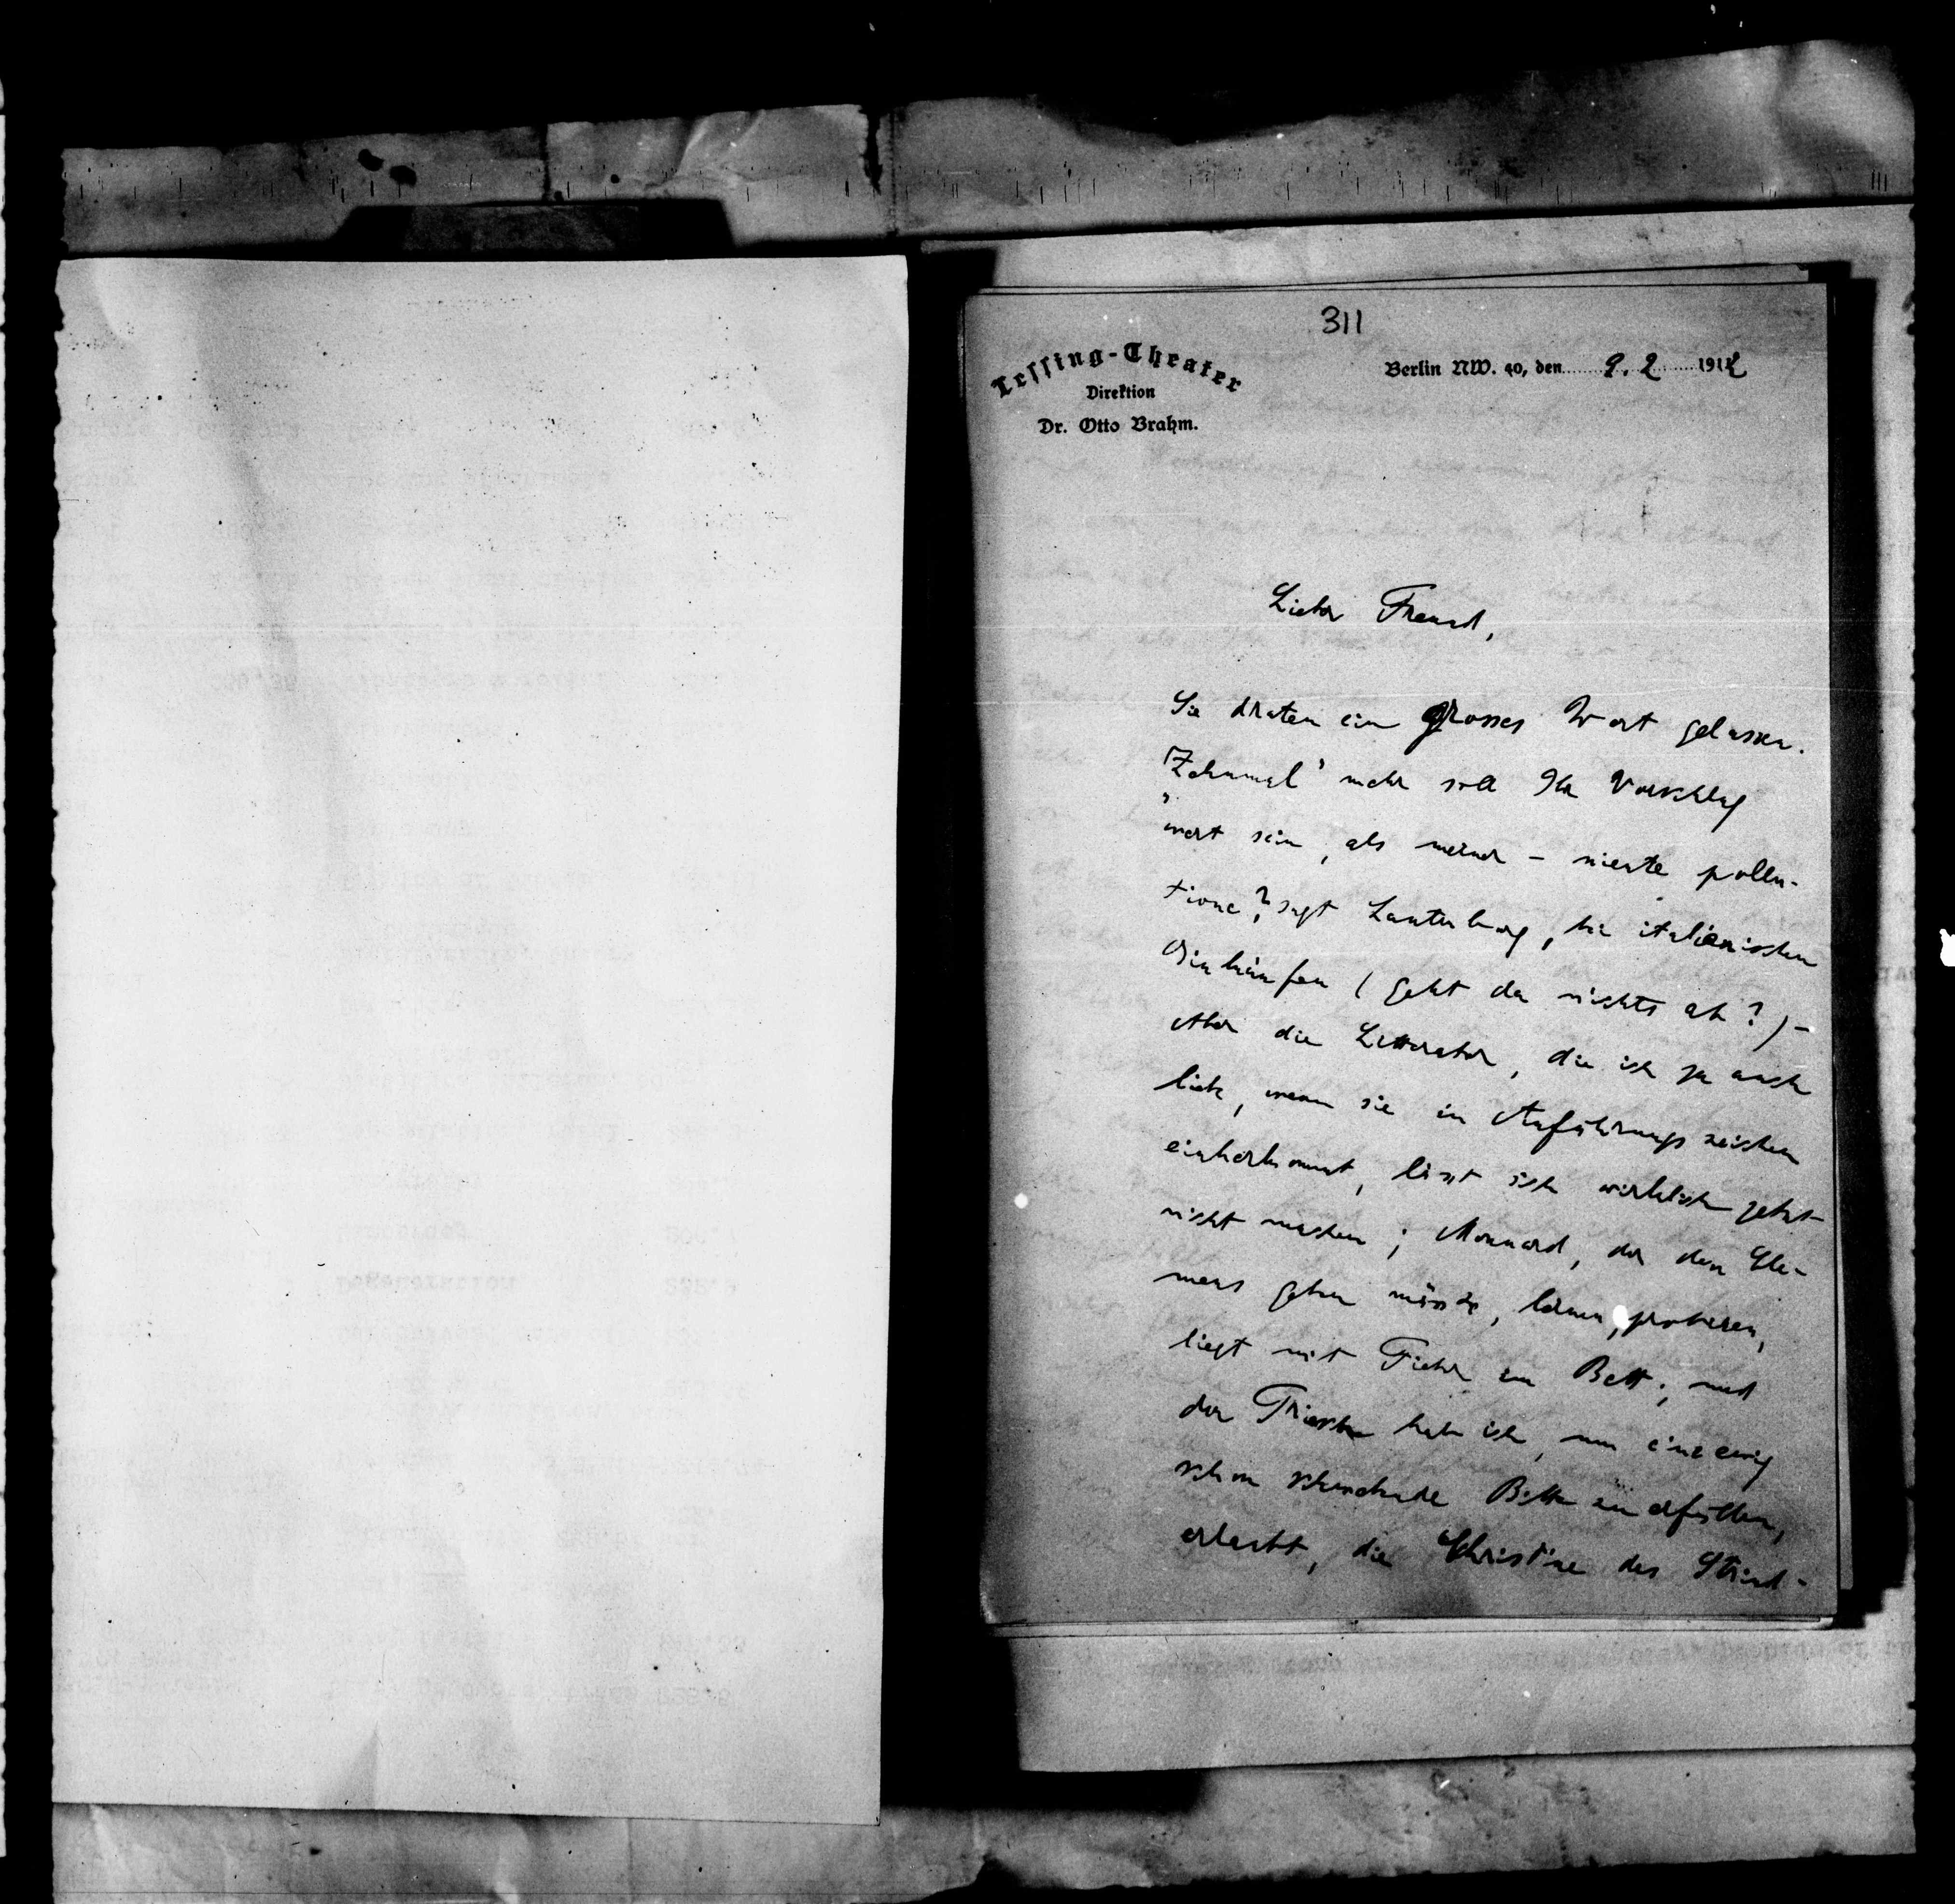 311
Lessing-Theater
Direktion
Dr. Otto Brahm.
Berlin NW. 40, den 9. 2 1912
Lieber Freund,
Sie draten ein grosses Wort gelassen.
"Zehnmal" mehr soll Ihr Vorschlag
wert sein, als meiner – niente pollu-
tione? sagt Lautenburg, die italienischen
(geht da nichts ab?) –
Aber die Litteratur, die ich ja auch
liebe, wenn sie in Anführungszeichen
einherkommt, lässt sich wirklich jetzt
nicht machen; Monnard, der den Cle-
mens geben müsste, lernen, probieren,
liegt mit Fieber im Bett; und
der Triesch hab ich, um eine ewig
schon schwebende Bitte zu erfüllen,
erlaubt, die Christine des Strind-